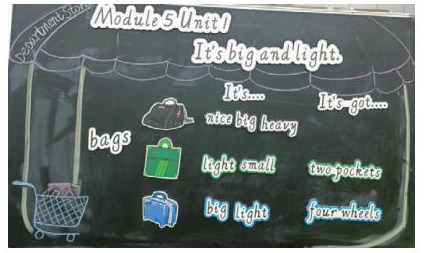 Department Store
Module 5 Unit 1
It's big and light.
It's.... It's got....
nice big heavy
bags
light small two pockets
big light four wheels